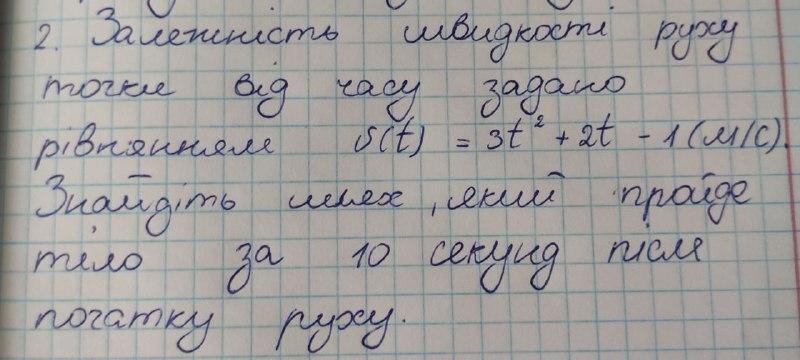 2. Залежність швидкості руху
точки від часу задано
рівнянням υ(t) = 3t² + 2t - 1 (м/с).
Знайдіть шлях, який пройде
тіло за 10 секунд після
початку руху.